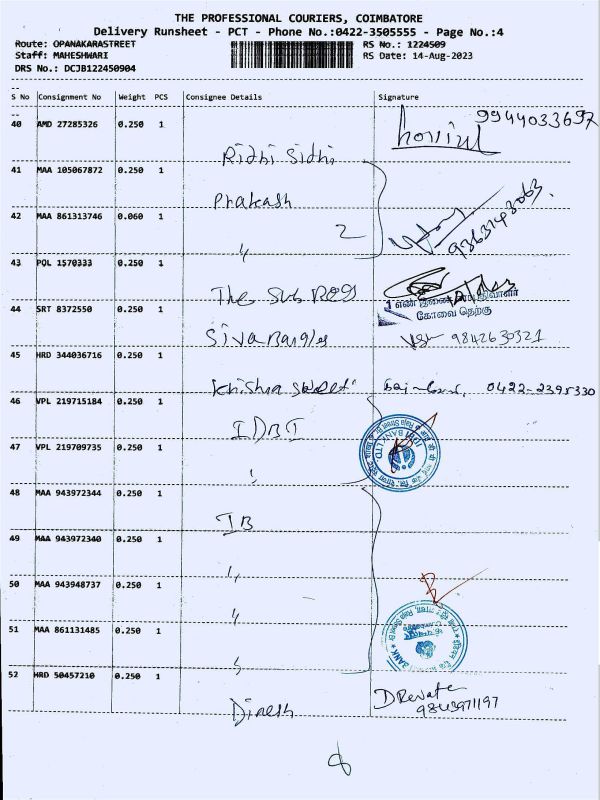 THE PROFESSIONAL COURIERS, COIMBATORE
Delivery Runsheet - PCT - Phone No.:0422-3505555 - Page No.:4
Route: OPANAKARASTREET RS No.: 1224509
Staff: MAHESHWARI RS Date: 14-Aug-2023
DRS No.: DCJB122450904
S No Consignment No Weight PCS Consignee Details Signature
40 AMD 27285326 0.250 1 9944033697
Ridhi Sidhi
41 MAA 105067872 0.250 1
Prakash
42 MAA 861313746 0.060 1 2 9363143063.
"
43 PQL 1570333 0.250 1
The Sub REG
44 SRT 8372550 0.250 1 கோவை தெற்கு
Siva Bangles 9842630321
45 HRD 344036716 0.250 1
Krishna Sweet 0422-2395330
46 VPL 219715184 0.250 1
IDBI
IDBI BANK LTD
47 VPL 219709735 0.250 1
"
48 MAA 943972344 0.250 1
IB
49 MAA 943972340 0.250 1
"
50 MAA 943948737 0.250 1
"
51 MAA 861131485 0.250 1
"
BANK
52 HRD 50457210 0.250 1
Dinesh D Revate
9843971197